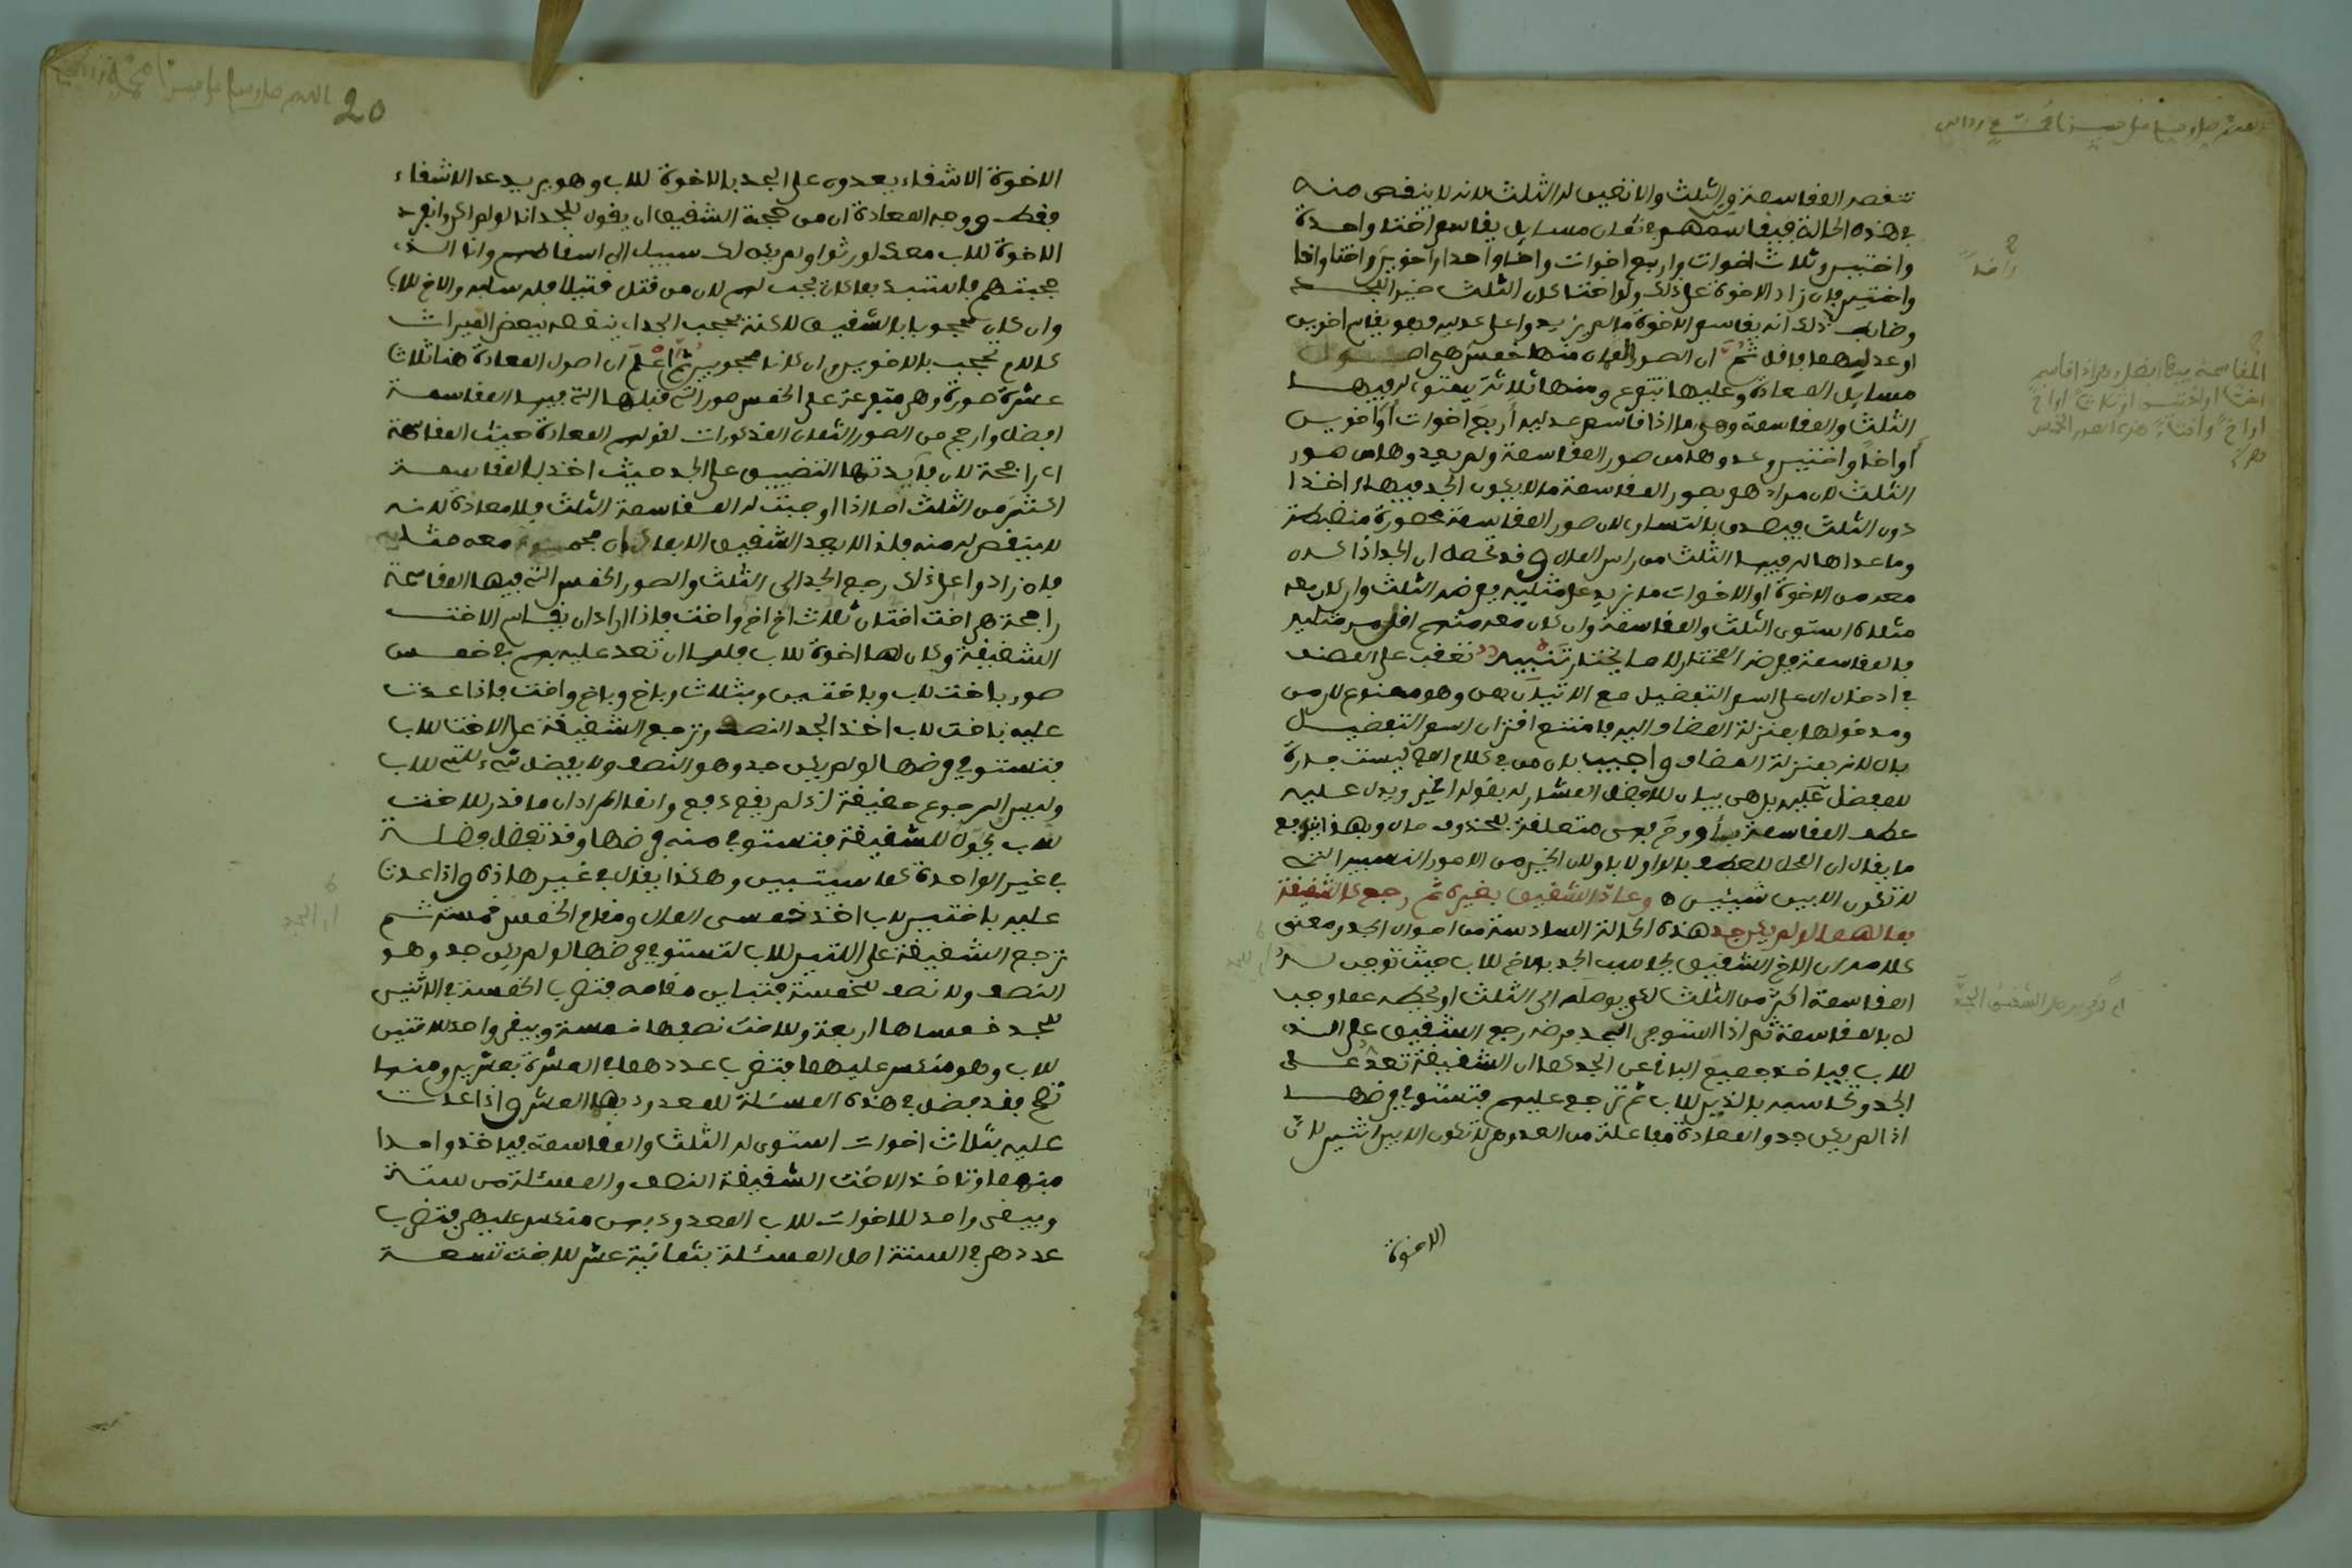 تنقصه المقاسمة والثلث والا تعين له الثلث لانه لا ينقص منه
في هذه الحالة فيقاسمهم في ثمان مسايل يقاسم اختا واحدة
واختين وثلاث اخوات واربع اخوات واخا واحدا واخوين واختا واخا
واختين فان زاد الاخوة على ذلك ولو اختا كان الثلث خيرا للجد
وضابط ذلك انه يقاسم الاخوة ما لم يزيدوا على عدليه وهو يقاسم اخوين
او عدليهما فاقل ثم ان الصور الثمان منها خمس هي اصول
مسايل المعادة وعليها تتفرع ومنها ثلاثة يستوي له فيها
الثلث والمقاسمة وهي ما اذا قاسم عدليه أربع اخوات أو اخوين
أو اخا واختين وعدوها من صور المقاسمة ولم يعدوها من صور
الثلث لان مراد هو بصور المقاسمة ما لا يكون الجد فيها اخذا
دون الثلث فيصدق بالتساوي لان صور المقاسمة محصورة منضبطة
وما عداها له فيها الثلث من راس المال وقد تحصل ان الجد اذا كان
معه من الاخوة او الاخوات ما يزيد على مثليه ففرضه الثلث وان كان معه
مثلاه استوى الثلث والمقاسمة وان كان معه منهم اقل من مثليه
فالمقاسمة فرضه المختار لا ما يختار تنبيه تعقب على المصنف
في ادخال ال على اسم التفضيل مع الاتيان بمن وهو ممنوع لان من
ومدخولها بمنزلة المضاف اليه فامتنع اقتران اسم التفضيل
بال لانه بمنزلة المضاف واجيب بان من في كلام المص ليست جارة
للمفضل عليه بل هي بيان للافضل المشار له بقوله الخير ويدل عليه
عطف المقاسمة بأو وح فمن متعلقة بمحذوف حال وبهذا يندفع
ما يقال ان المحل للعطف بالواو لا باو لان الخير من الامور النسبية التي
لا تكون الا بين شيئين وعاد الشقيق بغيره ثم رجع كالشقيقة
بما لها لو لم يكن جد هذه الحالة السادسة من احوال الجد ومعنى
كلامه ان الاخ الشقيق يحاسب الجد بالاخ للاب حيث تؤمن له
المقاسمة اكثر من الثلث لكي يوصله الى الثلث او يحطه عما وجب
له بالمقاسمة ثم اذا استوفى الجد فرضه رجع الشقيق على الذي
للاب فياخذ جميع الباقي عن الجد كما ان الشقيقة تعد على
الجد وتحاسبه بالذين للاب ثم ترجع عليهم فتستوفي فرضها
اذا لم يكن جد والمعادة مفاعلة من العدد وهي لا تكون الا بين اثنين لان
الاخوة
20
الاخوة الاشقاء يعدون على الجد بالاخوة للاب وهو يريد عد الاشقاء
فقط ووجه المعادة ان من حجة الشقيق ان يقول للجد انا لو لم اكن وانفرد
الاخوة للاب معك لورثوا ولم يكن لك سبيل الى اسقاطهم وانا الذي
حجبتهم فاستبد بما كان يجب لهم لان من قتل قتيلا فله سلبه والاخ للاب
وان كان محجوبا بالشقيق لاكنه يحجب الجد اي ينقصه ببعض الميراث
كالام تحجب بالاخوين وان كانا محجوبين ثم اعلم ان اصول المعادة هنا ثلاث
عشرة صورة وهي متفرعة على الخمس صور التي قبلها التي فيها المقاسمة
افضل وارجح من الصور الثمان المذكورات لقولهم المعادة حيث المقاسمة
اي راجحة لان فايدتها التضييق على الجد حيث اخذ بالمقاسمة
اكثر من الثلث اما اذا اوجبت له المقاسمة الثلث فلا معادة لانه
لا ينقص له منه فلذا لا يعد الشقيق الا بما كان مجموعه معه مثليه
فان زادوا على ذلك رجع الجد الى الثلث والصور الخمس التي فيها المقاسمة
راجحة هي اخت اختان ثلاث اخ اخ واخت فاذا اراد ان يقاسم الاخت
الشقيقة وكان لها اخوة للاب فلها ان تعد عليه بهم في خمس
صور باخت لاب وباختين وبثلاث وباخ وباخ واخت فاذا عدت
عليه باخت لاب اخذ الجد النصف وترجع الشقيقة على الاخت للاب
فتستوفي فرضها لو لم يكن جد وهو النصف ولا يفضل شيء للتي للاب
وليس الرجوع حقيقة اذ لم يقع دفع وانما المراد ان ما قدر للاخت
للاب يحول للشقيقة فتستوفي منه فرضها وقد تفضل فضلة
في غير الواحدة كما سيتبين وهكذا يقال في غير هاذه واذا عدت
عليه باختين لاب اخذ خمسي المال ومقام الخمس خمسة ثم
ترجع الشقيقة على اللتين للاب لتستوفي فرضها لو لم يكن جد وهو
النصف ولا نصف للخمسة فتباين مقامه فتضرب الخمسة في الاثنين
للجد خمساها اربعة وللاخت نصفها خمسة ويبقى واحد للاختين
للاب وهو منكسر عليهما فتضرب عددهما في العشرة بعشرين ومنها
تصح فقد فضل في هذه المسئلة للمعدود بهما العشر واذا عدت
عليه بثلاث اخوات استوى له الثلث والمقاسمة فياخذ واحدا
منهما وتاخذ الاخت الشقيقة النصف والمسئلة من ستة
ويبقى واحد للاخوات للاب المعدود بهن منكسر عليهن فتضرب
عددهن في الستة اصل المسئلة بثمانية عشر للاخت تسعة